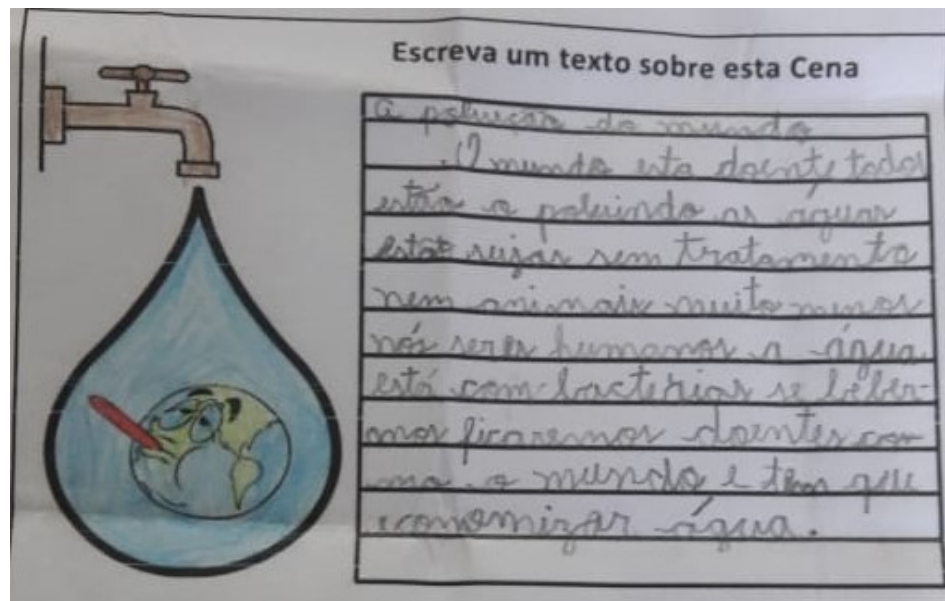 Escreva um texto sobre esta Cena
a poluição do mundo
.O mundo esta doente todos
estão o poluindo as águas
estão sujas sem tratamento
nem animais muito menos
nós seres humanos a água
está com bacterias se beber-
mos ficaremos doentes co
mo o mundo e tem que
economizar água.